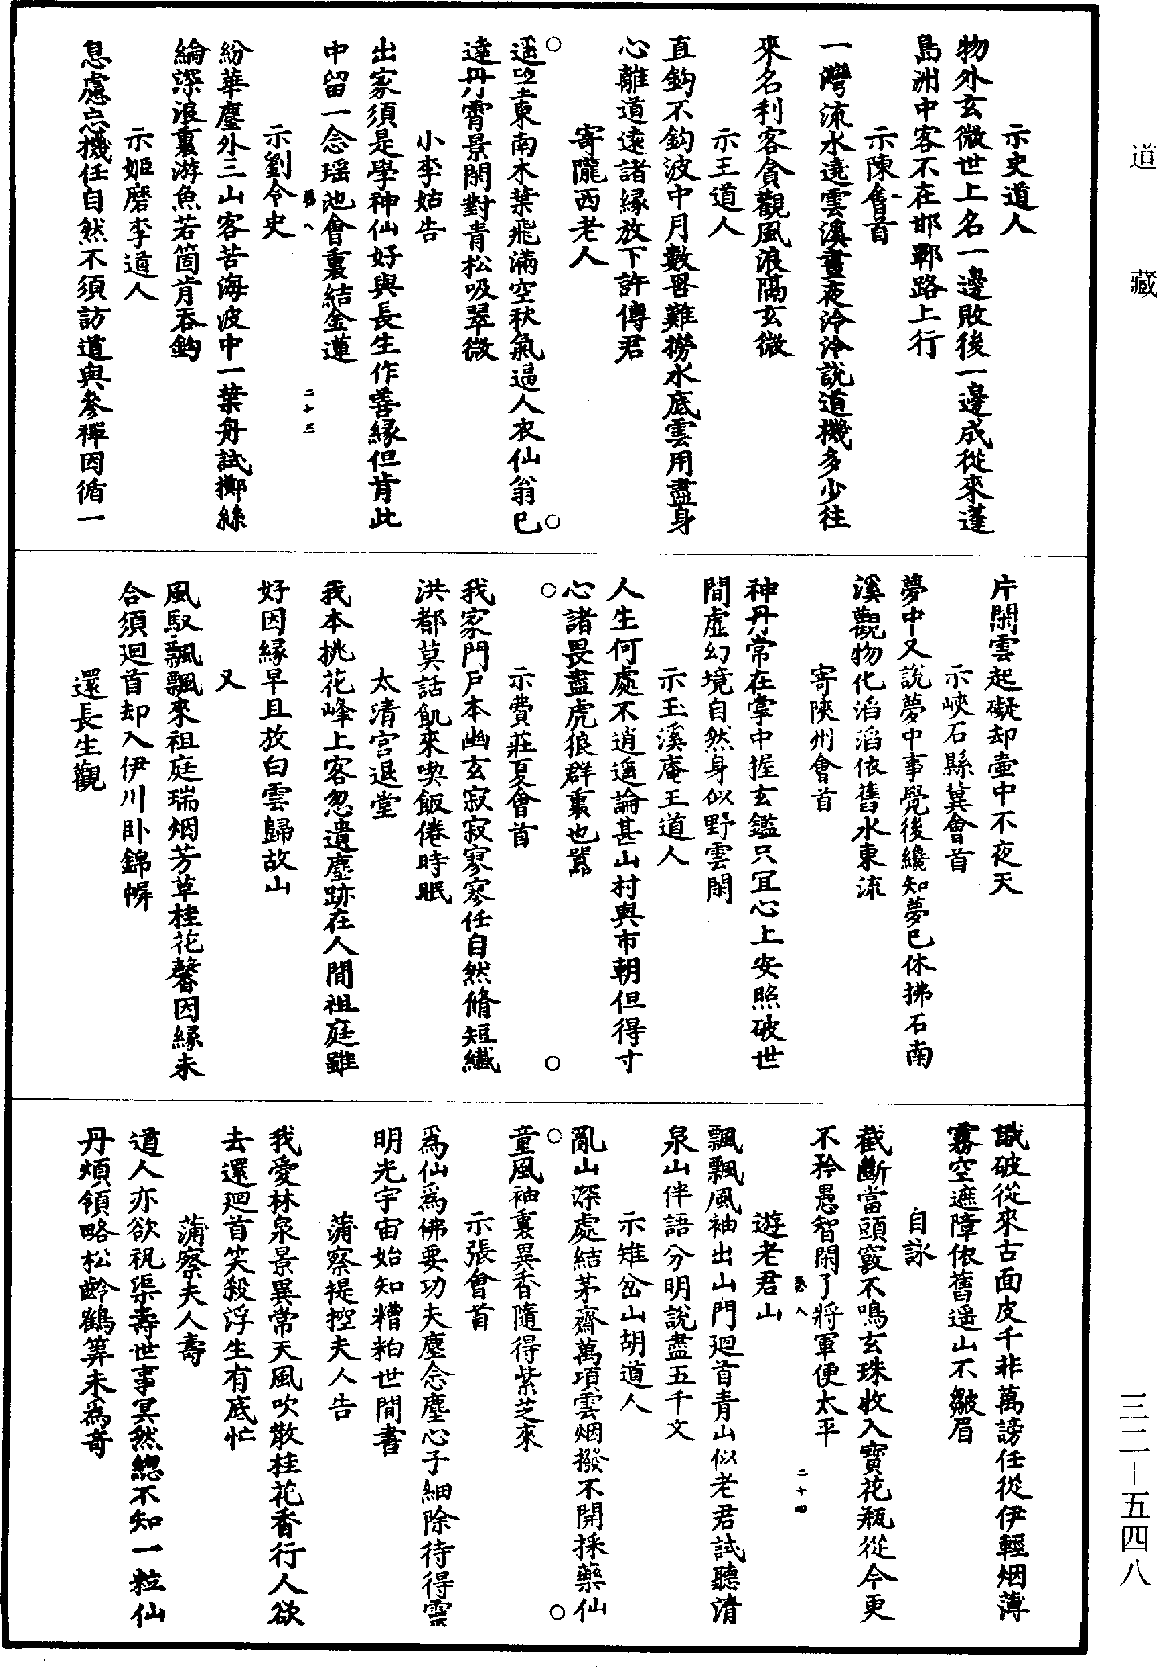 道藏
示史道人
物外玄微世上名一邊敗後一邊成從來蓬
島洲中客不在邯鄲路上行
示陳會首
一灣流水遶雲溪晝夜泠泠說道機多少往
來名利客貪觀風浪隔玄微
示王道人
直鈎不釣波中月數罟難撈水底雲用盡身
心離道遠諸緣放下許傳君
寄隴西老人
遥望東南木葉飛滿空秋氣逼人衣仙翁已
達丹霄景閑對青松吸翠微
小李姑告
出家須是學神仙好與長生作善緣但肯此
中留一念瑶池會裏結金蓮
卷八
二十三
示劉令史
紛華塵外三山客苦海波中一葉舟試擲絲
綸深浪裏游魚若箇肯吞鈎
示姬磨李道人
息慮忘機任自然不須訪道與參禪因循一
片閑雲起礙却壷中不夜天
示峽石縣冀會首
夢中又說夢中事覺後纔知夢已休拂石南
溪觀物化滔滔依舊水東流
寄陝州會首
神丹常在掌中握玄鑑只宜心上安照破世
間虛幻境自然身似野雲閑
示玉溪庵王道人
人生何處不逍遥論甚山村與市朝但得寸
心諸畏盡虎狼群裏也囂
示費莊夏會首
我家門戶本幽玄寂寂寥寥任自然脩短纖
洪都莫話飢來喫飯倦時眠
太清宫退堂
我本桃花峰上客忽遺塵跡在人間祖庭雖
好因緣早且放白雲歸故山
又
風馭飄飄來祖庭瑞烟芳草桂花馨因緣未
合須廻首却入伊川卧錦幈
還長生觀
識破從來古面皮千非萬謗任從伊輕烟薄
霧空遮障依舊遥山不皺眉
自詠
截斷當頭竅不鳴玄珠收入寶花瓶從今更
不矜愚智閑了將軍便太平
卷八
二十四
遊老君山
飄飄風袖出山門廻首青山似老君試聽清
泉山伴語分明說盡五千文
示雉岔山胡道人
亂山深處結茅齋萬項雲烟撥不開採藥仙
童風袖裏異香隨得紫芝來
示張會首
爲仙爲佛要功夫塵念塵心子細除待得靈
明光宇宙始知糟粕世間書
蒲察提控夫人告
我愛林泉景異常天風吹散桂花香行人欲
去還廻首笑殺浮生有底忙
蒲察夫人壽
道人亦欲祝渠壽世事冥然緫不知一粒仙
丹煩領略松齡鶴筭未爲奇
三二—五四八